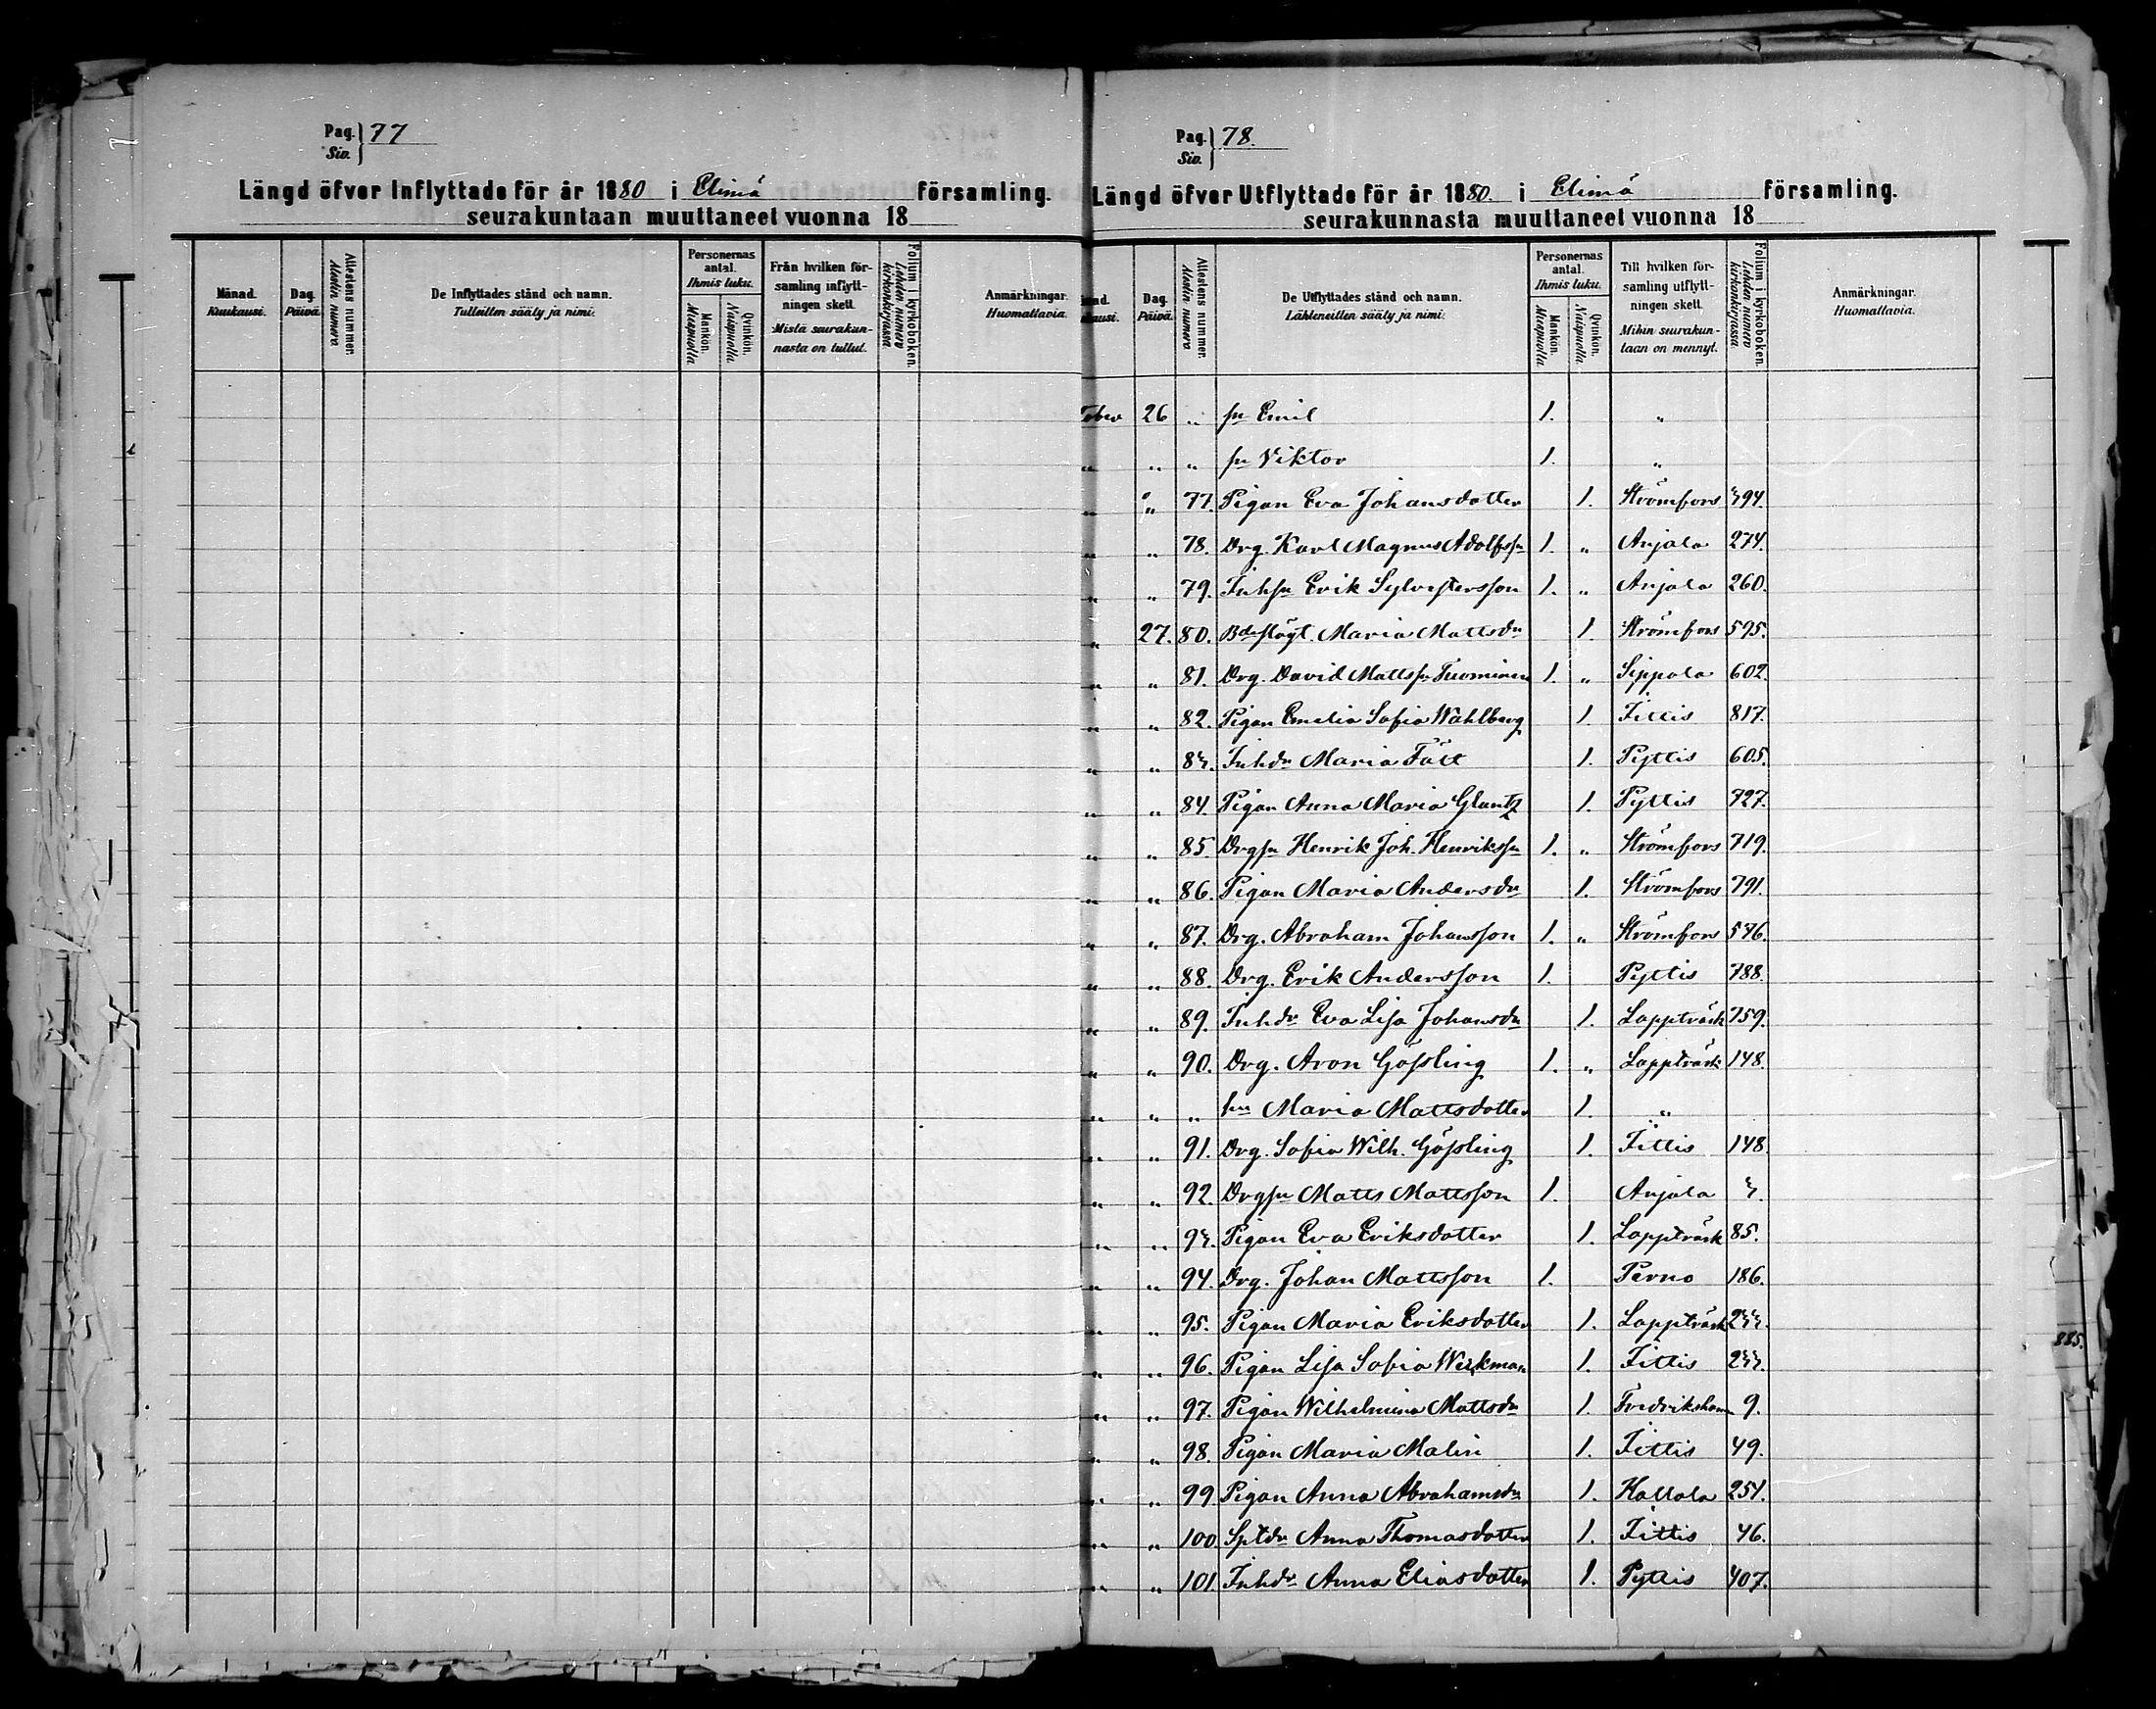 Pag. 77
Siv.
Längd öfver Inflyttade för år 1880 i Elimä församling.
seurakuntaan muuttaneet vuonna 18
Månad. Kuukausi.
Dag. Päivä.
Attestens nummer. Atestin numero
De Inflyttades stånd och namn. Tulleitten sääty ja nimi.
Personernas antal. Ihmis luku.
Mankön. Miespuolta
Qvinkön. Naispuolta
Från hvilken församling inflyttningen skett. Mistä seurakunnasta on tullut.
Folium i kyrkoboken. Lehden numero kirkonkirjassa
Anmärkningar. Huomattavia.
Pag. 78.
Siv.
Längd öfver Utflyttade för år 1880. i Elimä församling.
seurakunnasta muuttaneet vuonna 18
Dag. Päivä.
Attestens nummer. Atestin numero
De Utflyttades stånd och namn. Lähteneitten sääty ja nimi.
Personernas antal. Ihmis luku.
Mankön. Miespuolta
Qvinkön. Naispuolta
Till hvilken församling utflyttningen skett. Mihin seurakuntaan on mennyt.
Folium i kyrkoboken. Lehden numero kirkonkirjassa
Anmärkningar. Huomattavia.
26 " sn Emil 1. "
" " " sn Viktor 1. "
" " 77. Pigan Eva Johansdotter 1. Strömfors 394.
" " 78. Drg. Karl Magnus Adolfssn 1. " Anjala 274.
" " 79. Inhsn Erik Sylvestersson 1. " Anjala 260.
" 27. 80. Maria Mattsdr 1. Strömfors 595.
" " 81. Drg. David Mattssn Tuominen 1. " Sippola 602.
" " 82. Pigan Emelia Sofia Wahlberg 1. Iittis 817.
" " 83. Inhdr Maria Tätt 1. Pyttis 605.
" " 84. Pigan Anna Maria Glantz 1. Pyttis 727.
" " 85. Drgsn Henrik Joh. Henrikssn 1. " Strömfors 719.
" " 86. Pigan Maria Andersdr 1. Strömfors 791.
" " 87. Drg. Abraham Johansson 1. " Strömfors 576.
" " 88. Drg. Erik Andersson 1. Pyttis 788.
" " 89. Inhdr Eva Lisa Johansdr 1. Lappträsk 759.
" " 90. Drg. Aron Gössling 1. " Lappträsk 148.
" " " hu Maria Mattsdotter 1. "
" " 91. Drg. Sofia Wilh. Gössling 1. Iittis 148.
" " 92. Drgsn Matts Mattsson 1. Anjala 3.
" " 93. Pigan Eva Eriksdotter 1. Lappträsk 85.
" " 94. Drg. Johan Mattsson 1. Perno 186.
" " 95. Pigan Maria Eriksdotter 1. Lappträsk 233.
" " 96. Pigan Lisa Sofia Werkman 1. Iittis 233.
" " 97. Pigan Wilhelmina Mattsdr 1. Fredrikshamn 9.
" " 98. Pigan Maria Malin 1. Iittis 49.
" " 99 Pigan Anna Abrahamsdr 1. Kallola 251.
" " 100. Spltdr Anna Thomasdotter 1. Iittis 46.
" " 101 Inhdr Anna Eliasdotter 1. Pyttis 407.
885.